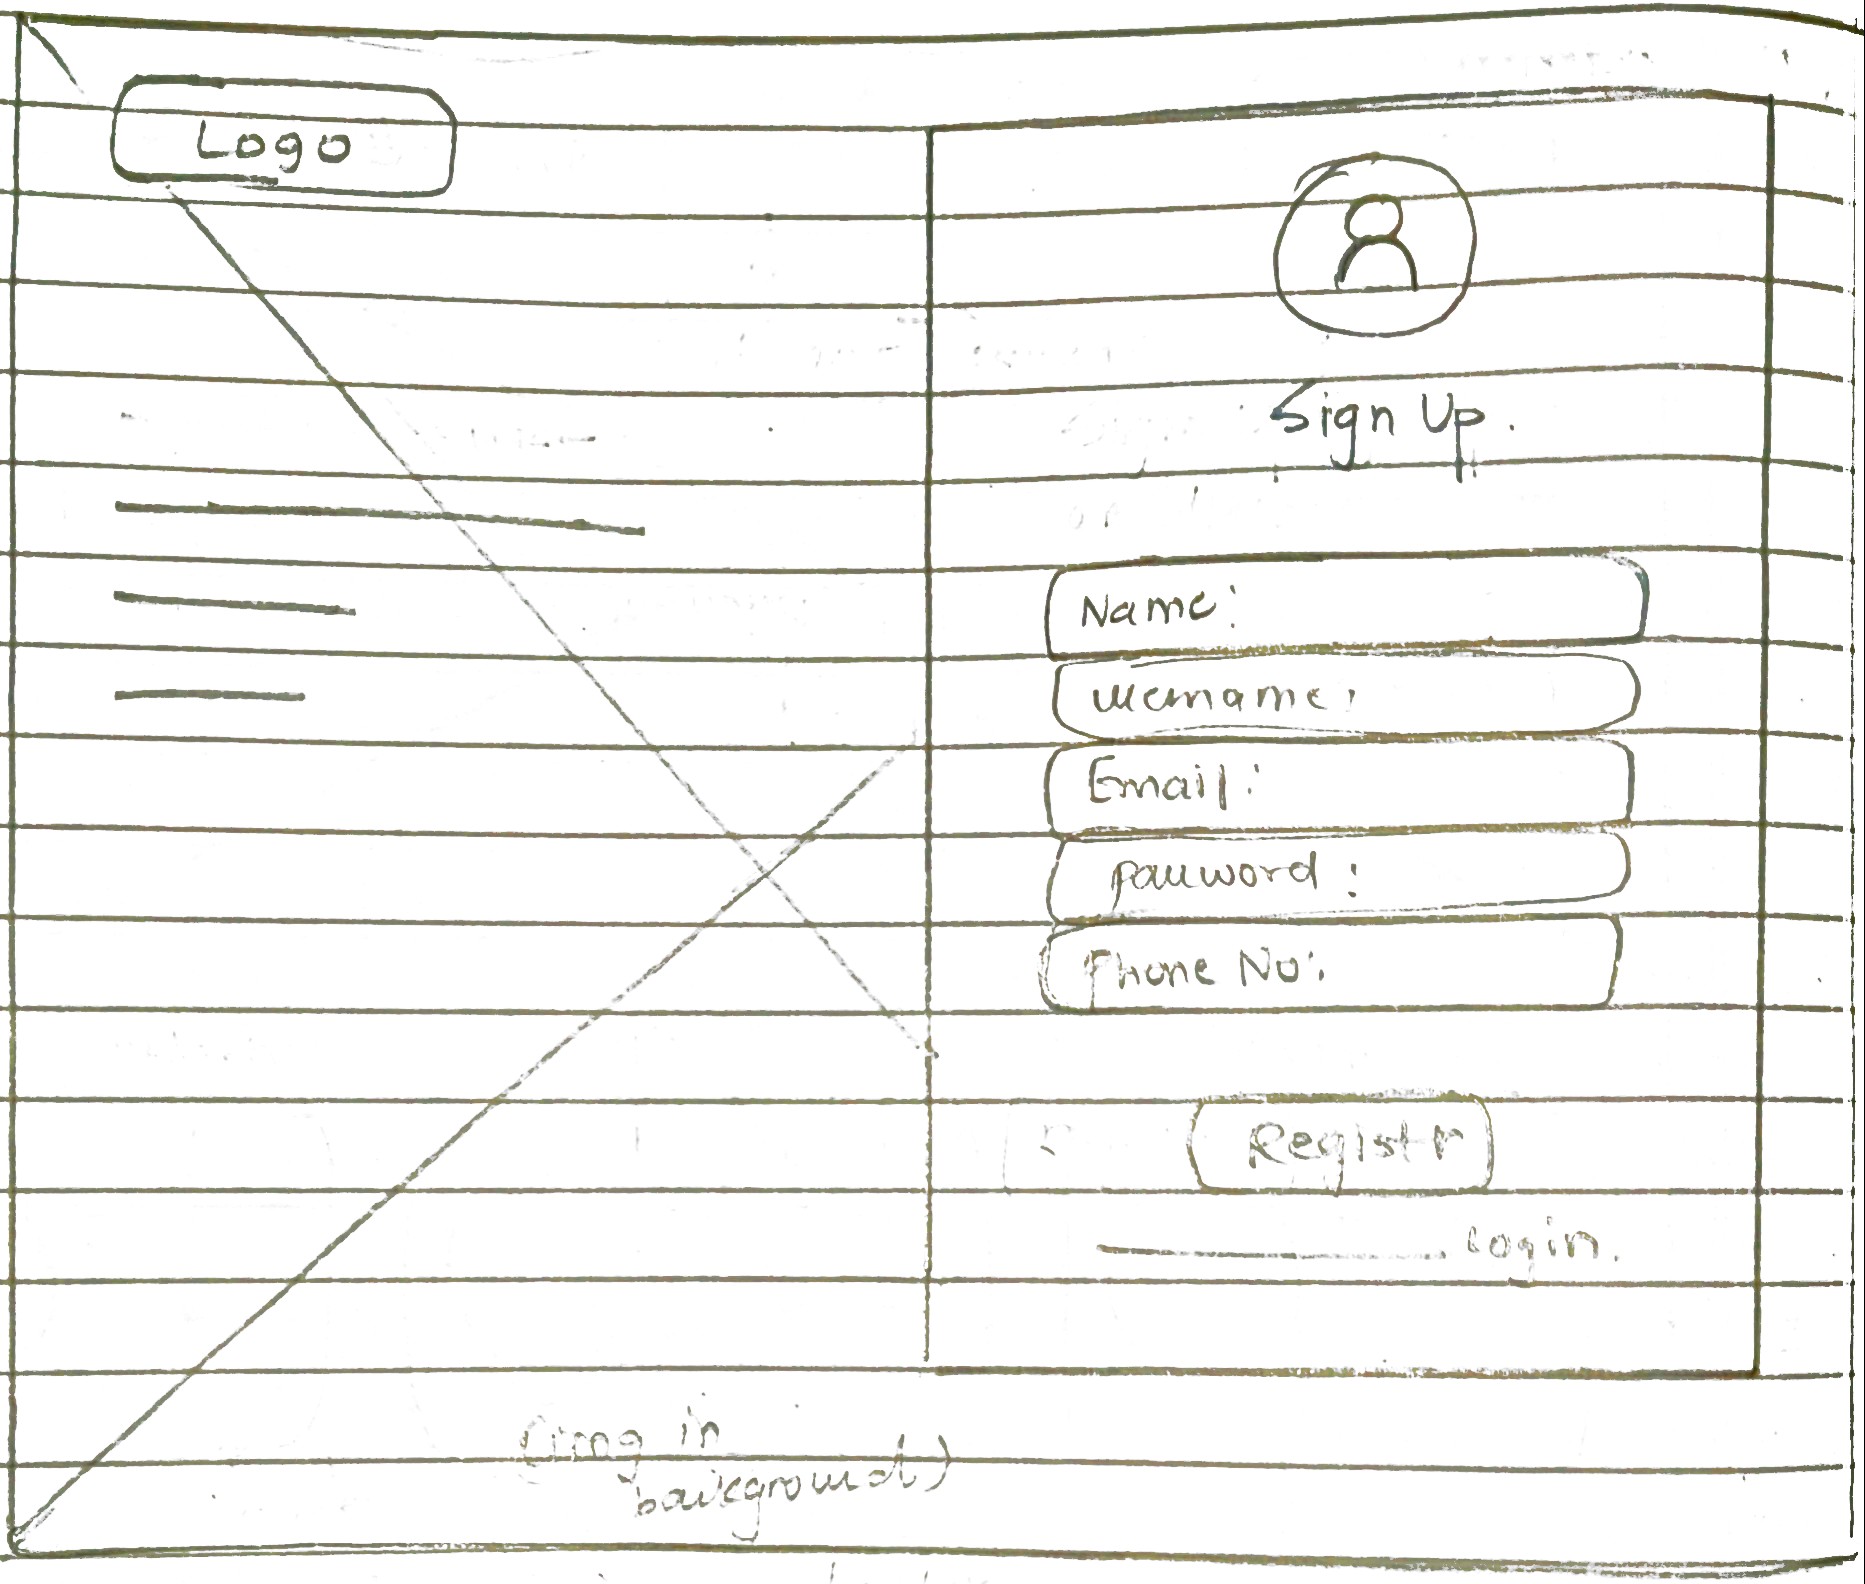 Logo
Sign Up.
Name:
username:
Email:
password:
Phone No:
Registr
Login.
(img in
background)